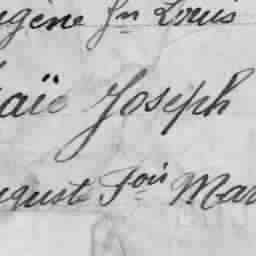 ugène fn Louis
aïe Joseph
uguste Fois Mar